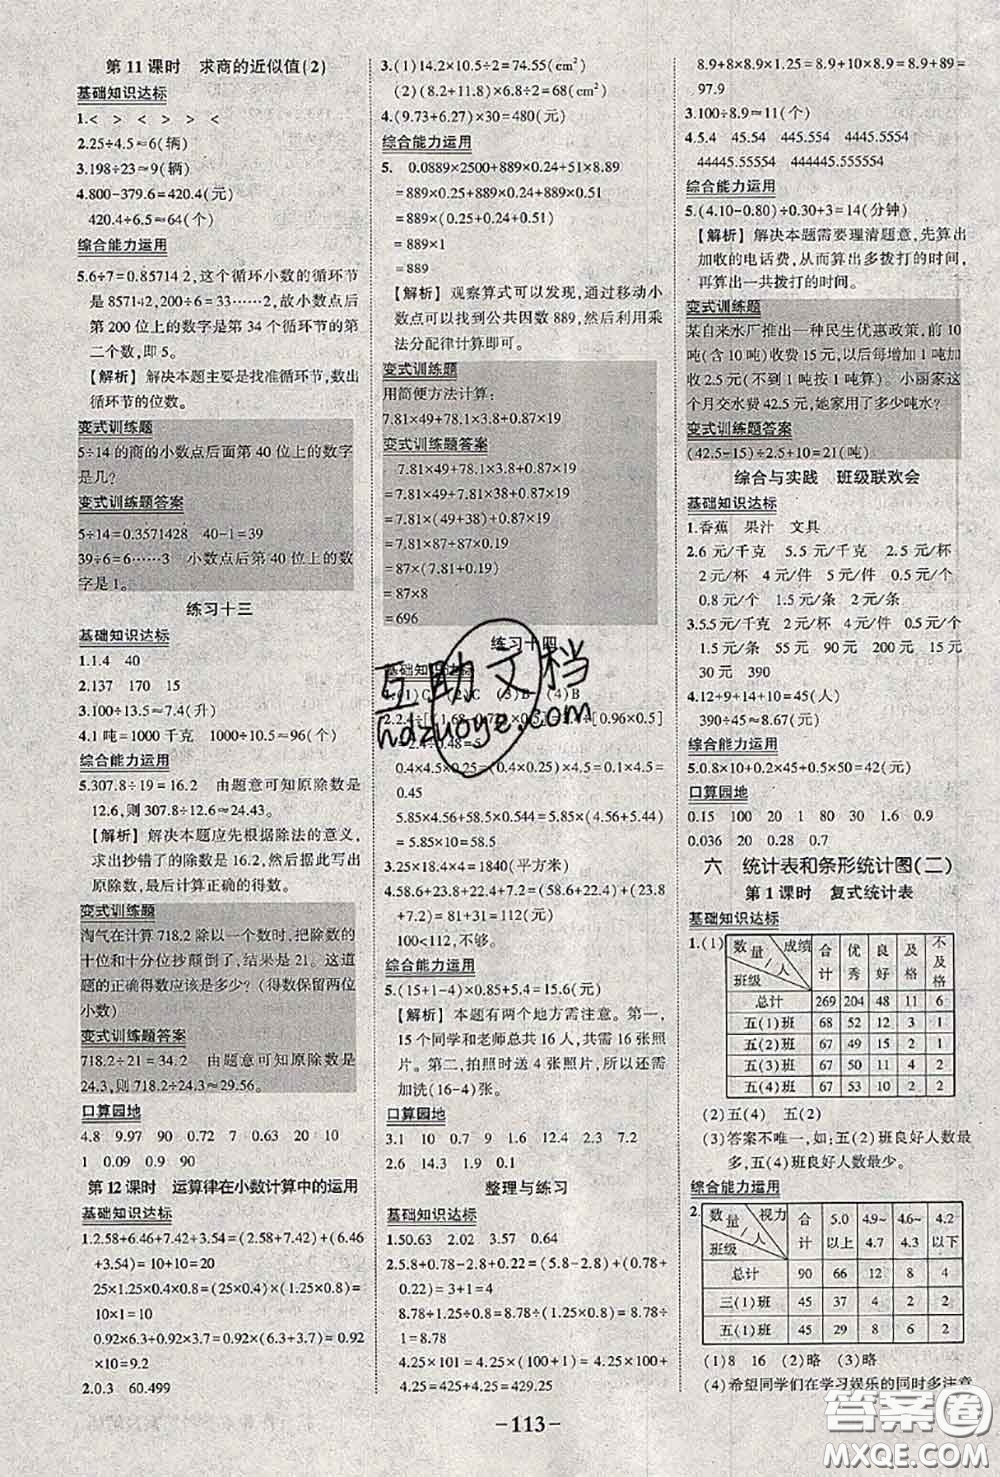 第 11 课时　求商的近似值(2)
基础知识达标
1.<　>　<　>　>　<
2.25÷4.5≈6(辆)
3.198÷23≈9(辆)
4.800-379.6=420.4(元)
420.4÷6.5≈64(个)
综合能力运用
5.6÷7=0.857142,这个循环小数的循环节
是 857142,200÷6=33……2,故小数点后
第 200 位上的数字是第 34 个循环节的第
二个数,即 5。
【解析】 解决本题主要是找准循环节,数出
循环节的位数。
变式训练题
5÷14 的商的小数点后面第 40 位上的数字
是几?
变式训练题答案
5÷14=0.3571428　40-1=39
39÷6=6……3　小数点后第 40 位上的数
字是 1。
练习十三
基础知识达标
1.1.4　40
2.137　170　15
3.100÷13.5≈7.4(升)
4.1 吨=1000 千克　1000÷10.5≈96(个)
综合能力运用
5.307.8÷19=16.2　由题意可知原除数是
12.6,则 307.8÷12.6≈24.43。
【解析】 解决本题应先根据除法的意义,
求出抄错了的除数是 16.2,然后此题写出
原除数,最后计算正确的得数。
变式训练题
淘气在计算 718.2 除以一个数时,把除数的
十位和十分位抄颠倒了,结果是 21。这道
题的正确得数应该是多少?(得数保留两位
小数)
变式训练题答案
718.2÷21=34.2　由题意可知原除数是
24.3,则 718.2÷24.3≈29.56。
口算园地
4.8　9.97　90　0.72　7　0.63　20　10
1　0.09　0.9　90
第 12 课时　运算律在小数计算中的运用
基础知识达标
1.2.58+6.46+7.42+3.54=(2.58+7.42)+(6.46
+3.54)=10+10=20
25×1.25×0.4×0.8=(25×0.4)×(1.25×0.8)=
10×1=10
0.92×6.4+0.92×3.6=0.92×(6.4+3.6)=0.92
×10=9.2
2.0.3　60.499
3.(1)14.2×10.5÷2=74.55(cm²)
(2)(8.2+11.8)×6.8÷2=68(cm²)
4.(9.73+6.27)×30=480(元)
综合能力运用
5.　0.0889×2500+889×0.24+51×8.89
=889×0.25+889×0.24+889×0.51
=889×(0.25+0.24+0.51)
=889×1
=889
【解析】 观察算式可以发现,通过移动小
数点可以找到公共因数 889,然后利用乘
法分配律计算即可。
变式训练题
用简便方法计算:
7.81×49+78.1×3.8+0.87×19
变式训练题答案
7.81×49+78.1×3.8+0.87×19
=7.81×49+7.81×38+0.87×19
=7.81×(49+38)+0.87×19
=7.81×87+87×0.19
=87×(7.81+0.19)
=87×8
=696
练习十四
基础知识达标
1.(1)C　(2)C　(3)B　(4)B
=2.4÷0.48=5
0.4×4.5×0.25=(0.4×0.25)×4.5=0.1×4.5=
0.45
5.85×4.5+5.85×5.5=5.85×(4.5+5.5)
=5.85×10=58.5
3.25×18.4×4=1840(平方米)
4.58.6+23.8+22.4+7.2=(58.6+22.4)+(23.8+
7.2)=81+31=112(元)
100<112,不够。
综合能力运用
5.(15+1-4)×0.85+5.4=15.6(元)
【解析】 本题有两个地方需注意。第一,
15 个同学和老师总共 16 人,共需 16 张照
片。第二,拍照时送 4 张照片,所以需付
加洗(16-4)张。
口算园地
3.1　10　0.7　9　1.6　12.4　2.3　7.2
2.6　14.3　1.9　0.1
整理与练习
基础知识达标
1.50.63　2.02　3.57　0.64
2.5.8+0.78-2.8+0.22=(5.8-2.8)+(0.78+
0.22)=3+1=4
8.78÷1.25÷0.8=8.78÷(1.25×0.8)=8.78÷
1=8.78
4.25×101=4.25×(100+1)=4.25×100+
4.25=425+4.25=429.25
8.9×8.9-8.9×1.25×0.8+89=8.9×10+89=
97.9
3.100÷8.9≈11(个)
4.5.4　45.54　445.554　4445.5554
44445.55554　444445.555554
综合能力运用
5.(4.10-0.80)÷0.30+3=14(分钟)
【解析】 解决本题需要理清题意,先算出
加收的电话费,从而算出多拨打的时间,
再算出一共拨打的时间。
变式训练题
某自来水厂推出一种民生优惠政策,前 10
吨(含 10 吨)收费 15 元,以后每增加 1 吨加
收 2.5 元(不到 1 吨按 1 吨算)。小丽家这
个月交水费 42.5 元,她家用了多少吨水?
变式训练题答案
(42.5-15)÷2.5+10=21(吨)
综合与实践　班级联欢会
基础知识达标
1.香蕉　果汁　文具
2.6 元/千克　5.5 元/千克　2.5 元/千克
2 元/杯　4 元/杯　5 元/件　2 元/件
0.8 元/个　1.5 元/个　1 元/个
3.5.5 元/千克　200 元　60 元　150 元
30 元　390 元
4.12+9+14+10=45(人)
390÷45≈8.67(元)
综合能力运用
5.0.8×10+2×12+0.5×50+25=82(元)
口算园地
0.15　100　20　1　80　30　1.6　0.9
0.036　20　0.28　0.7
六　统计表和条形统计图(二)
第 1 课时　复式统计表
基础知识达标
1.(1) 数量/人　成绩　班级　合计　优秀　良好　及格　不及格
总计　269　204　48　11　6
五(1)班　68　52　12　3　1
五(2)班　67　50　13　2　2
五(3)班　67　49　15　2　1
五(4)班　67　53　8　4　2
(2)五(4)　五(2)
(3)答案不唯一,如:五(3)班良好人数最
多,五(4)班良好人数最少。
综合能力运用
2. 数量/人　视力　班级　合计　5.0以上　4.9~4.7　4.6~4.3　4.2以下
总计　90　66　12　8　4
三(1)班　45　37　4　2　2
五(1)班　45　29　8　6　2
(1)8　16　(2)略　(3)略
(4)希望同学们在学习娱乐的同时多注意
-113-
互助文档
hdzuoye.com
答案圈
MXQE.COM